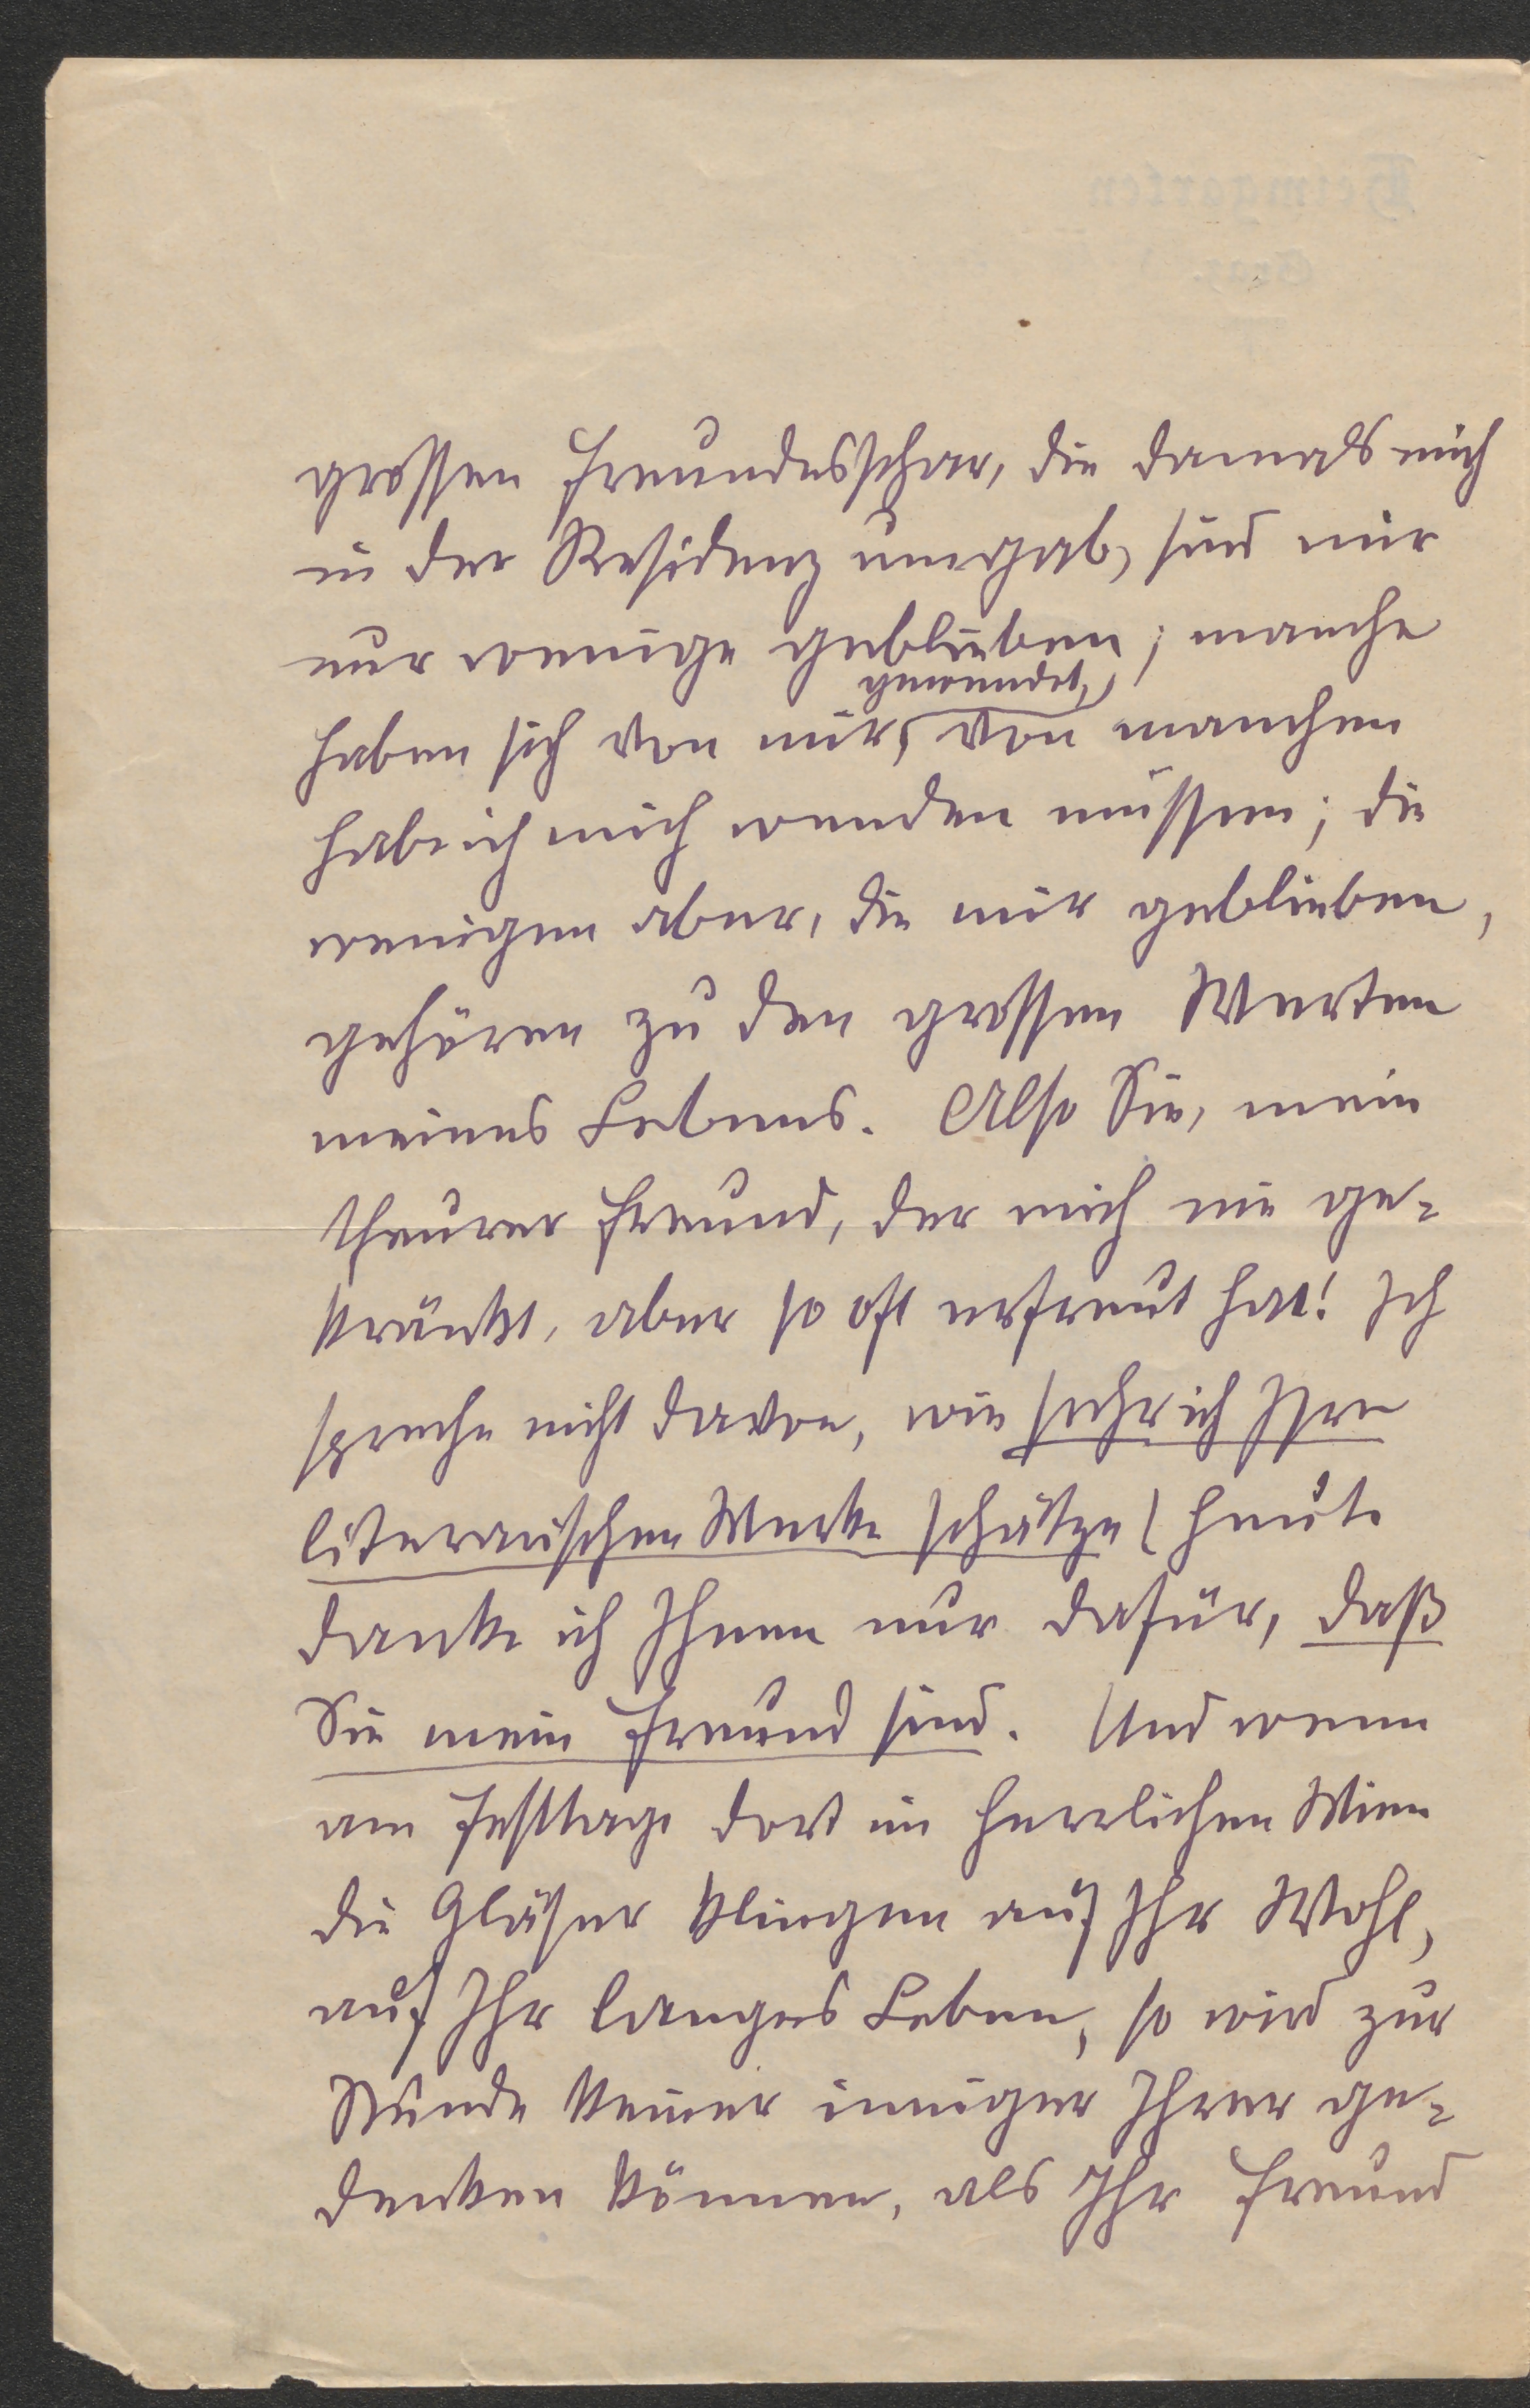 Heimgarten
Graz
grossen Freundesschar, die damals mich
in der Residenz umgab, sind mir
nur wenige geblieben; manche
gewendet,
haben sich von mir, von manchen
habe ich mich wenden müssen; die
wenigen aber, die mir geblieben,
gehören zu den grossen Werten
meines Lebens. Also Sie, mein
theurer Freund, der mich nie ge-
kränkt, aber so oft erfreut hat! Ich
spreche nicht davon, wie sehr ich Ihre
literarischen Werke schätze, heute
danke ich Ihnen nur dafür, daß
Sie mein Freund sind. Und wenn
am Festtage dort im herrlichen Wien
die Gläser klingen auf Ihr Wohl,
auf Ihr langes Leben, so wird zur
Stunde keiner inniger Ihrer ge-
denken können, als Ihr Freund